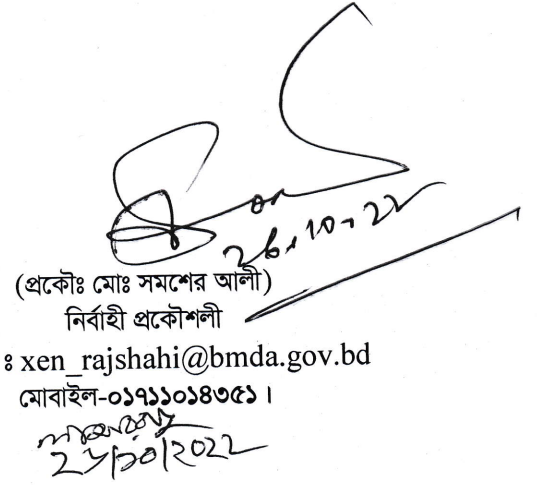 26.10.22
(প্রকৌঃ মোঃ সমশের আলী)
নির্বাহী প্রকৌশলী
ঃ xen_rajshahi@bmda.gov.bd
মোবাইল-০১৭১১০১৪৩৫১।
২৬/১০/2022